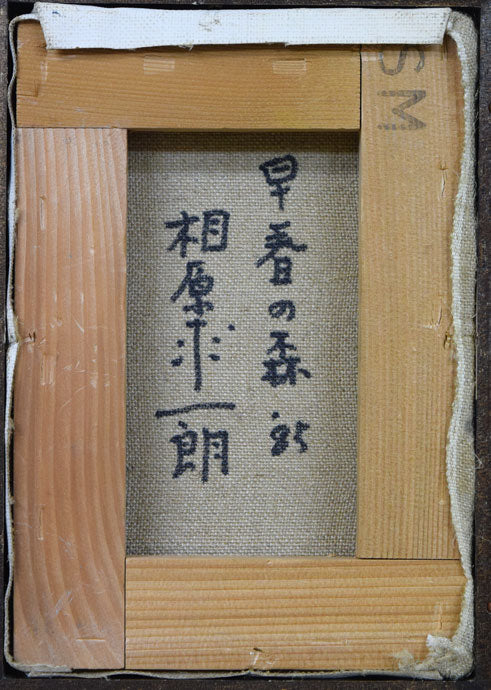 早春の森 '85
相原求一朗
SM